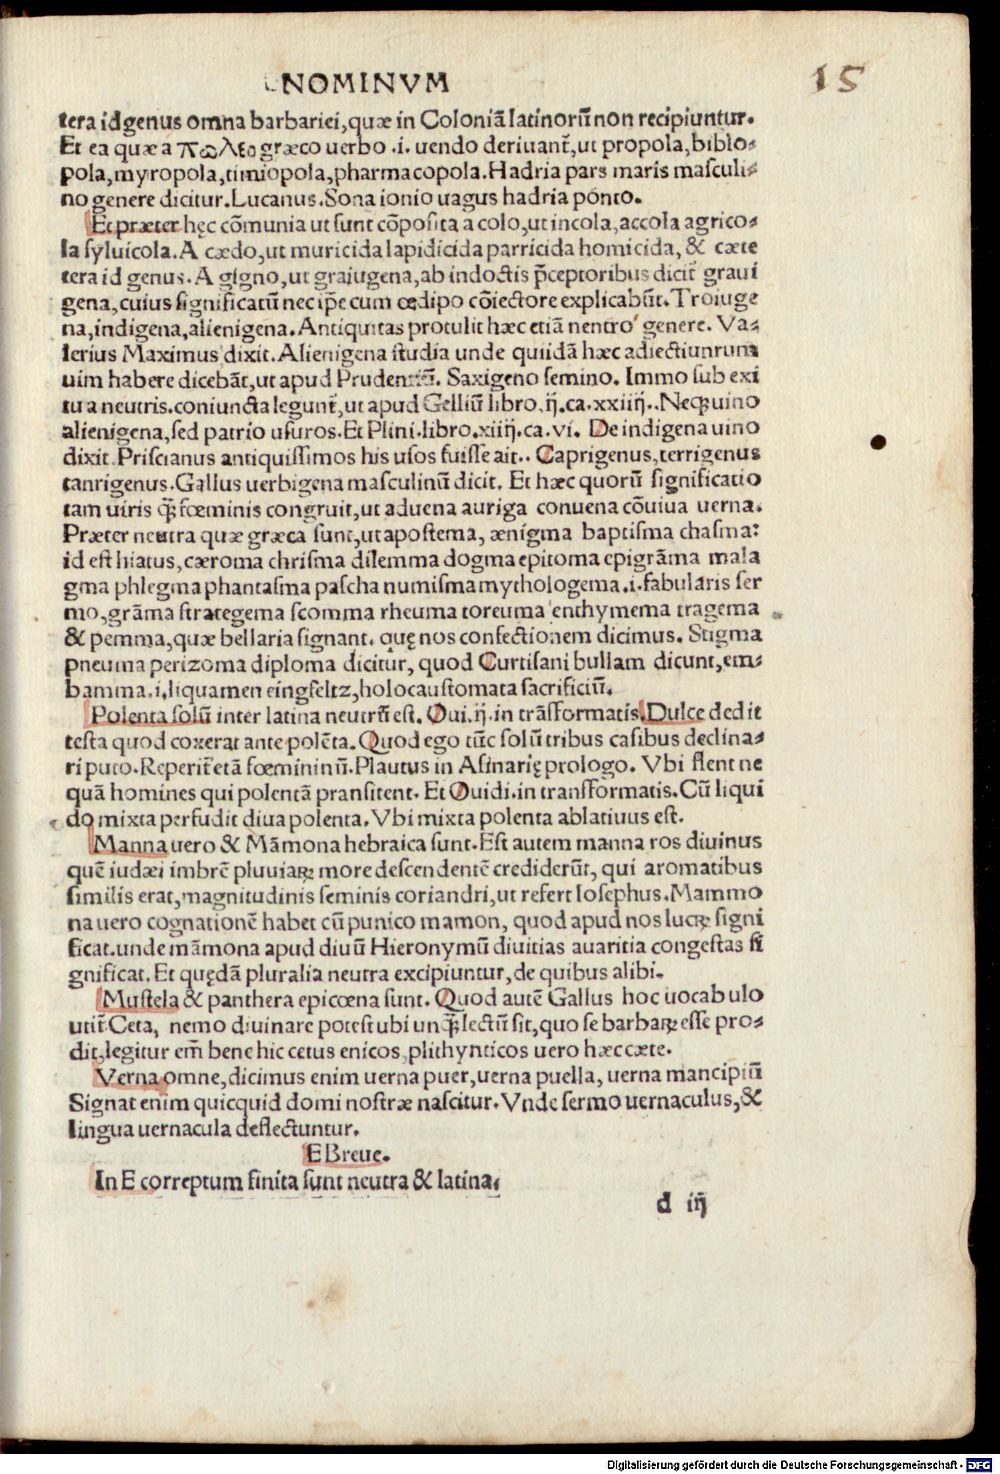 NOMINVM
15
tera id genus omna barbariei, quæ in Coloniã latinorũ non recipiuntur.
Et ea quæ a πωλεο græco uerbo .i. uendo deriuant̃, ut propola, biblo⸗
pola, myropola, timiopola, pharmacopola. Hadria pars maris masculi⸗
no genere dicitur. Lucanus. Sona ionio uagus hadria ponto.
Et præter hęc cõmunia ut sunt cõposita a colo, ut incola, accola agrico⸗
la syluicola. A cædo, ut muricida lapidicida parricida homicida, & cæte
tera id genus. A gigno, ut graiugena, ab indoctis p̃ceptoribus dicit̃ graui
gena, cuius significatũ nec ip̃e cum œdipo cõiectore explicabũt. Troiuge
na, indigena, alienigena. Antiquitas protulit hæc etiã nentro genere. Va⸗
lerius Maximus dixit. Alienigena studia unde quiidã hæc adiectiuruum
uim habere dicebãt, ut apud Prudentiũ. Saxigeno semino. Immo sub exi
tu a neutris. coniuncta legunt̃, ut apud Gelliũ libro. ij. ca. xxiiij.. Neqꝫ uino
alienigena, sed patrio usuros. Et Plini. libro. xiiij. ca. vi. De indigena uino
dixit. Priscianus antiquissimos his usos fuisse ait.. Caprigenus, terrigenus
tanrigenus. Gallus uerbigena masculinũ dicit. Et hæc quorũ significatio
tam uiris q̃ꝫ fœminis congruit, ut aduena auriga conuena cõuiua uerna.
Præter neutra quæ græca sunt, ut apostema, ænigma baptisma chasma:
id est hiatus, cæroma chrisma dilemma dogma epitoma epigrãma mala
gma phlegma phantasma pascha numisma mythologema .i. fabularis ser
mo, grãma strategema scomma rheuma toreuma enthymema tragema
& pemma, quæ bellaria signant. quę nos confectionem dicimus. Stigma
pneuma perizoma diploma dicitur, quod Curtisani bullam dicunt, em⸗
bamma .i. liquamen eingseltz, holocaustomata sacrificiũ.
Polenta solũ inter latina neutrũ est. Oui. ij. in trãsformatis. Dulce dedit
testa quod coxerat ante polẽta. Quod ego tũc solũ tribus casibus declina⸗
ri puto. Reperit̃ etã fœmininũ. Plautus in Asinarię prologo. Vbi flent ne
quã homines qui polentã pransitent. Et Ouidi. in transformatis. Cũ liqui
do mixta perfudit diua polenta. Vbi mixta polenta ablatiuus est.
Manna uero & Mãmona hebraica sunt. Est autem manna ros diuinus
quẽ iudæi imbrẽ pluuiaꝝ more descendentẽ crediderũt, qui aromatibus
similis erat, magnitudinis seminis coriandri, ut refert Iosephus. Mammo
na uero cognationẽ habet cũ punico mamon, quod apud nos lucꝝ signi
ficat. unde mãmona apud diuũ Hieronymũ diuitias auaritia congestas si
gnificat. Et quędã pluralia neutra excipiuntur, de quibus alibi.
Mustela & panthera epicœna sunt. Quod autẽ Gallus hoc uocabulo
utit̃ Ceta, nemo diuinare potest ubi unq̃ꝫ lectũ sit, quo se barbaꝝ esse pro⸗
dit, legitur em̃ bene hic cetus enicos, plithynticos uero hæc cæte.
Verna omne, dicimus enim uerna puer, uerna puella, uerna mancipiũ
Signat enim quicquid domi nostræ nascitur. Vnde sermo uernaculus, &
lingua uernacula deflectuntur.
E Breue.
In E correptum finita sunt neutra & latina.
d iij
Digitalisierung gefördert durch die Deutsche Forschungsgemeinschaft - DFG